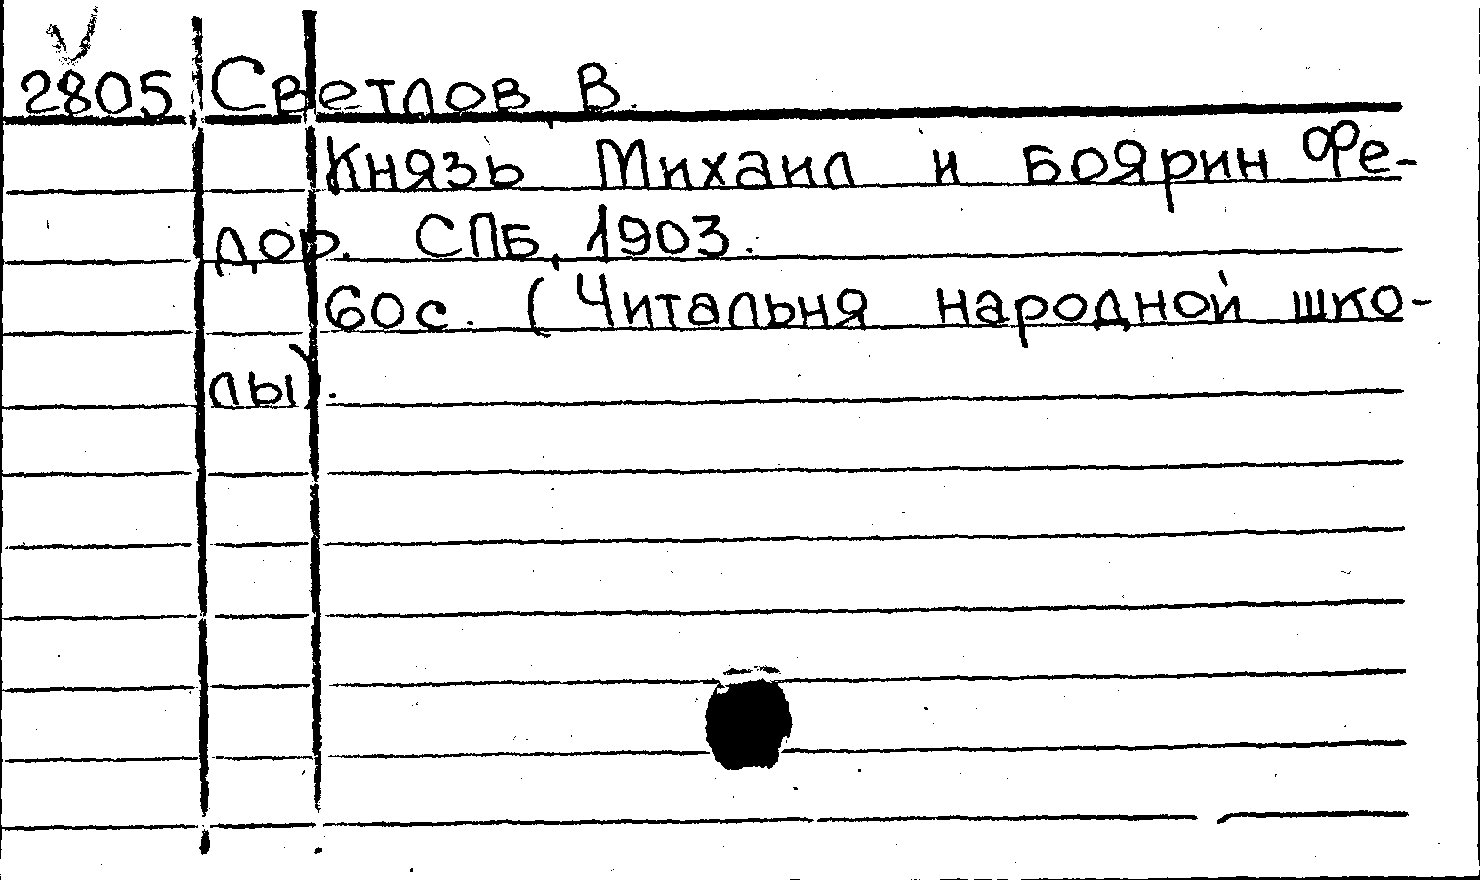 2805 Светлов В.
Князь Михаил и Боярин Фе-
дор. СПБ, 1903.
60с. (Читальня народной шко-
лы).